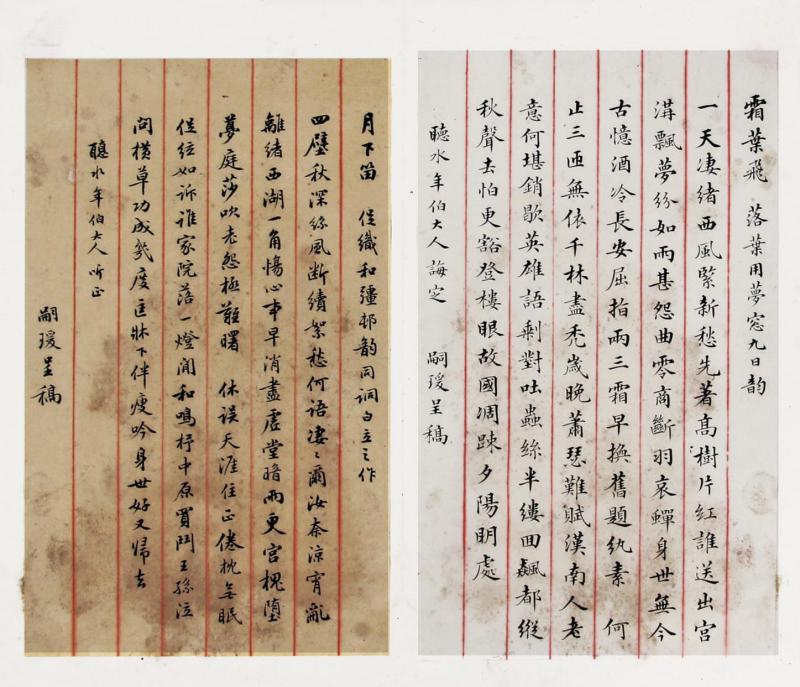 霜葉飛 落葉用夢窗九日韵
一天凄緒西風緊新愁先著高樹片紅誰送出宮
溝飄夢紛如雨甚怨曲零商斷羽哀蟬身世無今
古憶酒冷長安屈指兩三霜早換舊題紈素 何
止三匝無依千林盡禿歲晚蕭瑟難賦漢南人老
意何堪銷歇英雄語剩對吐蟲絲半縷回飆都縱
秋聲去怕更豁登樓眼故國凋踈夕陽明處
聽水年伯大人誨定 嗣瑗呈稿
月下笛 促織和彊邨韵同詞白立之作
四壁秋深絲風斷續絮愁何語凄〻爾汝奈凉宵亂
離緒西湖一角傷心事早消盡虛堂暗雨更宮槐墮
夢庭莎吹老怨極難曙 休誤天涯住正倦枕無眠
促絃如訴誰家院落一燈閒和鳴杼中原買鬥王孫泣
問橫草功成幾度匡牀下伴瘦吟身世好又歸去
聽水年伯大人听正
嗣瑗呈稿